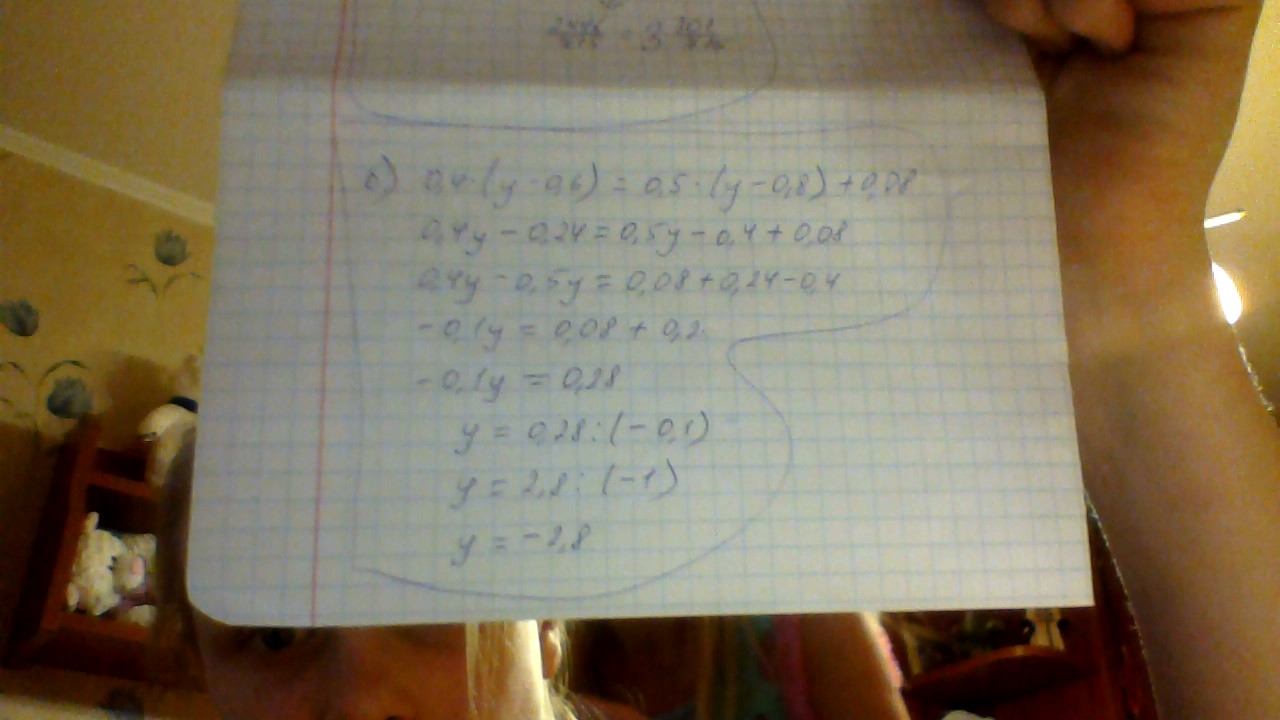 б) 0,4·(y-0,6)=0,5·(y-0,8)+0,08
0,4y-0,24=0,5y-0,4+0,08
0,4y-0,5y=0,08+0,24-0,4
-0,1y=0,08+0,2
-0,1y=0,28
y=0,28:(-0,1)
y=2,8:(-1)
y=-2,8